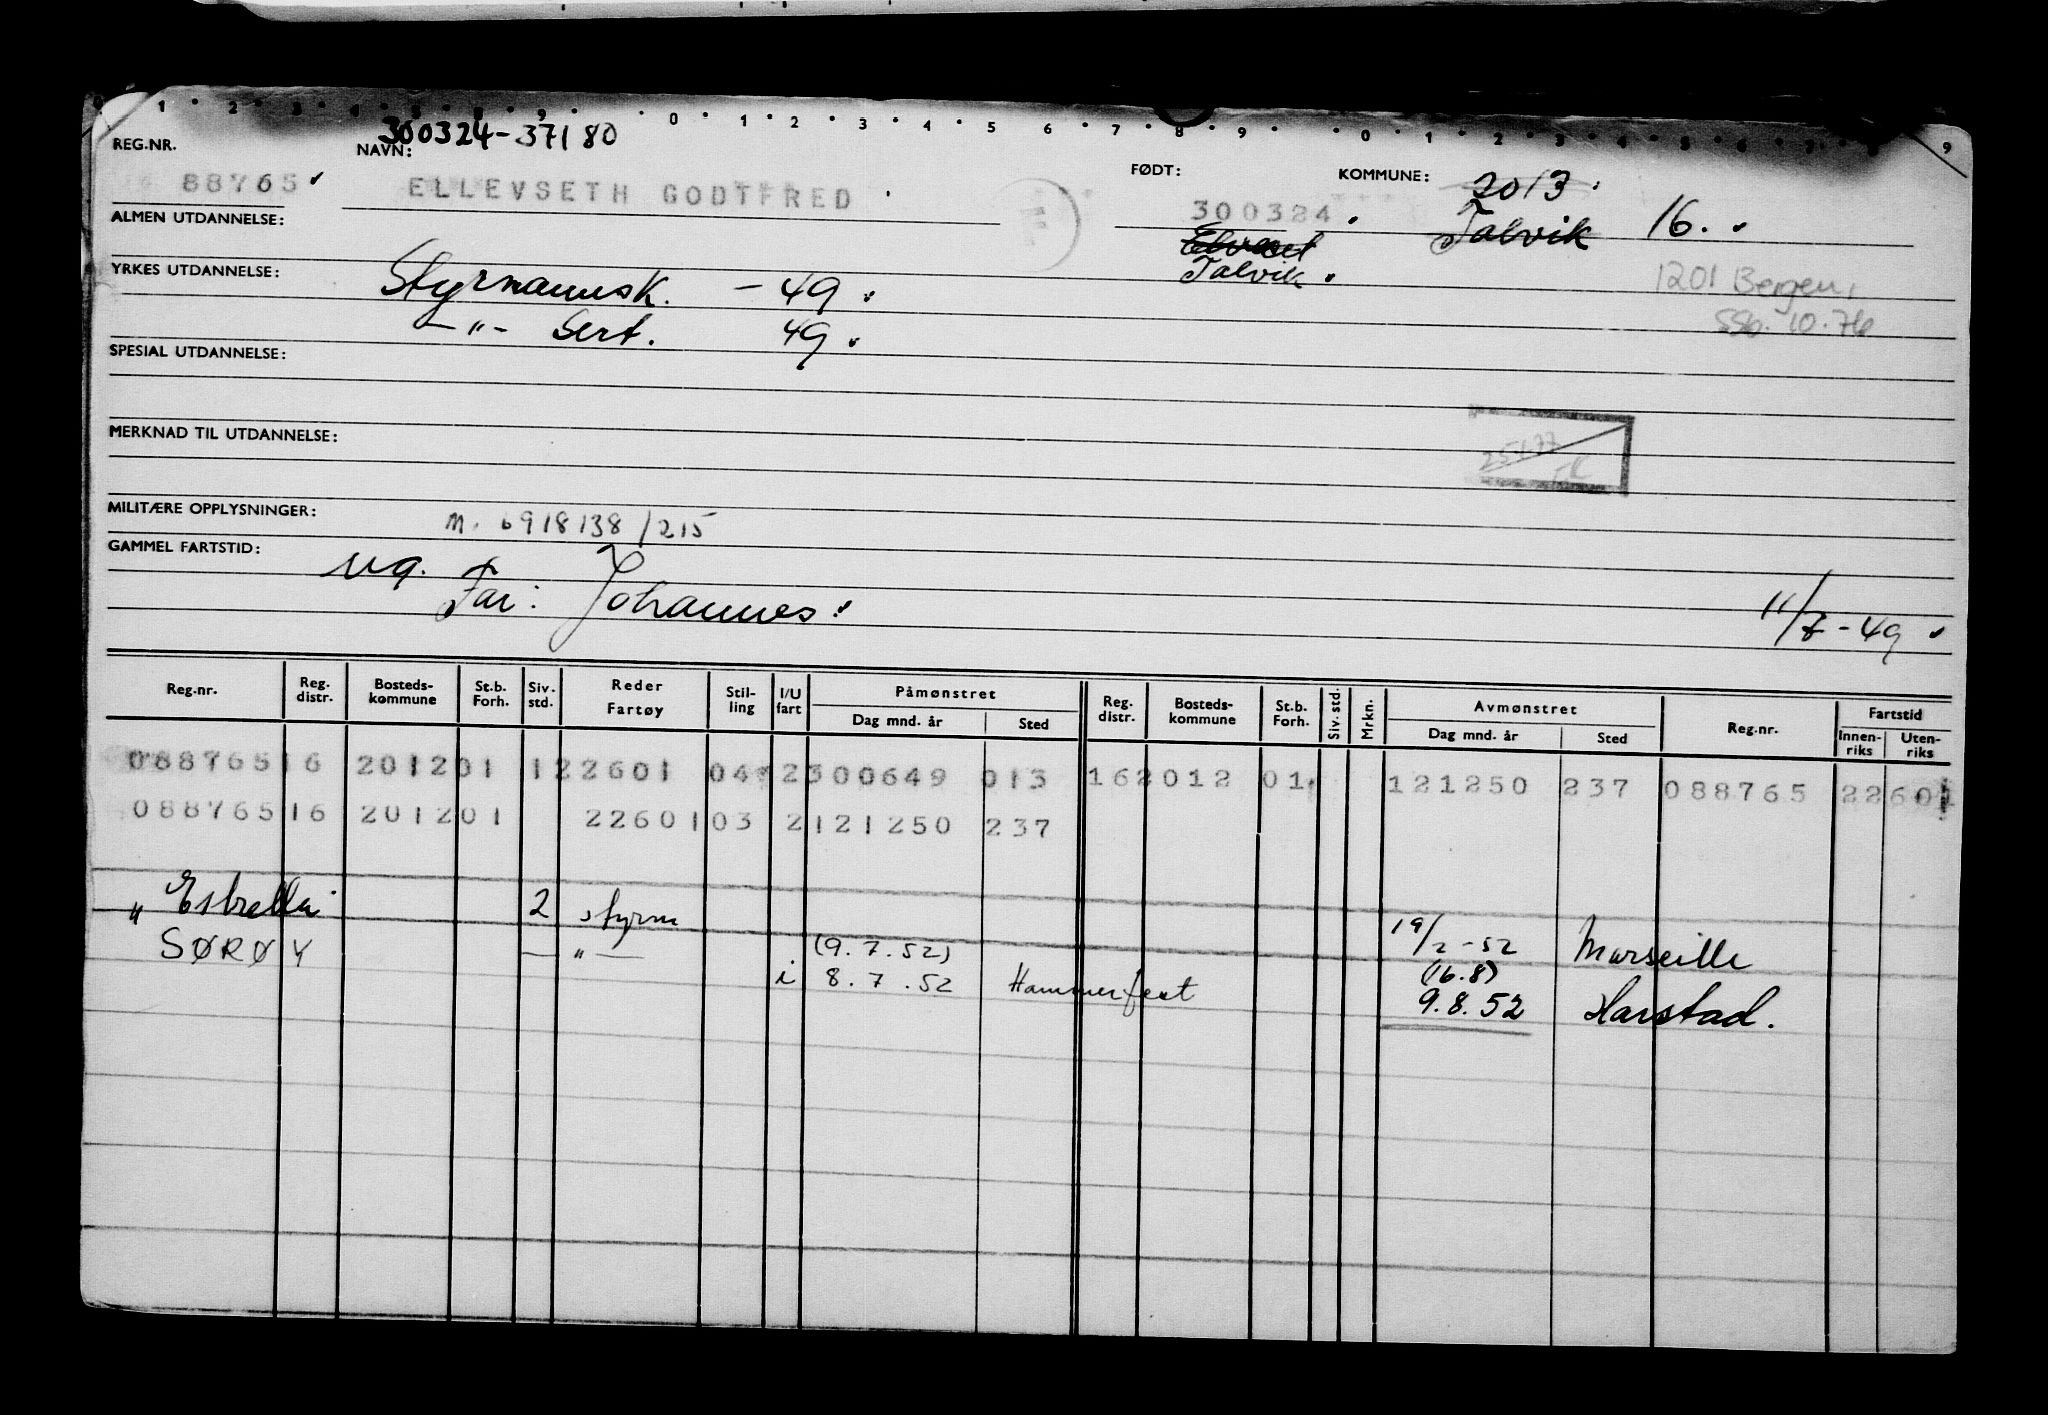 1 2 3 4 5 6 8 9 0 1 2 3 4 5 6 7 8 9 0 1 2 3 4 5 6 7 8 9
300324-37180
REG.NR. NAVN: FØDT: KOMMUNE: 2013
88765 ELLEVSETH GODTFRED 300324 Talvik 16.
ALMEN UTDANNELSE: Talvik
YRKES UTDANNELSE: Styrmannsk. - 49 1201 Bergen
-"- Sert. 49 SSb. 10.76
SPESIAL UTDANNELSE:
MERKNAD TIL UTDANNELSE:
MILITÆRE OPPLYSNINGER: m. 6918138/215
GAMMEL FARTSTID: ug.
Far: Johannes 11/7-49
Reg.nr. Reg. distr. Bosteds-kommune St.b. Forh. Siv. std. Reder Fartøy Stil-ling I/U fart Påmønstret Reg. distr. Bosteds-kommune St.b. Forh. Siv. std. Mrkn. Avmønstret Reg.nr. Fartstid
Dag mnd. år Sted Dag mnd. år Sted Innen-riks Uten-riks
088765 16 2012 01 1 22601 04 2 300649 013 16 2012 01 121250 237 088765 22601
088765 16 2012 01 22601 03 2 121250 237
"Estrella" 2 styrm 19/2-52 Marseille
SØRØY — " — (9.7.52) (16.8)
i 8.7.52 Hammerfest 9.8.52 Harstad.